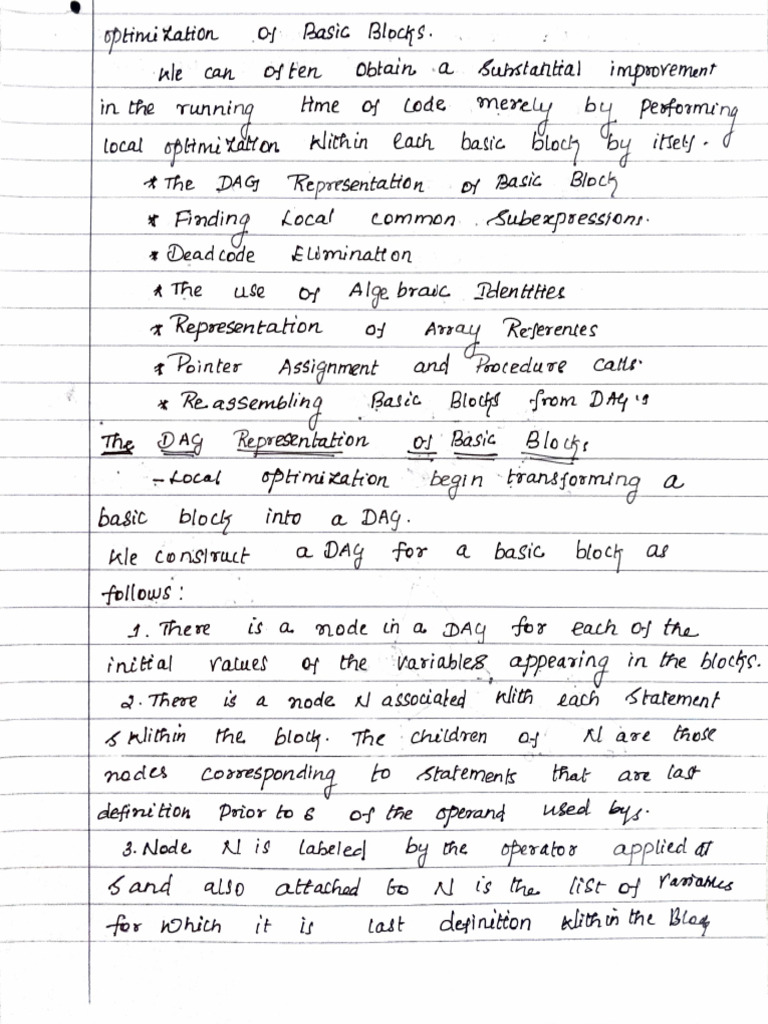 Optimization Of Basic Blocks.
We can often obtain a substantial improvement
in the running time of code merely by performing
local optimization within each basic block by itself.
* The DAG Representation of Basic Block
* Finding Local common Subexpressions.
* Deadcode Elimination
* The use of Algebraic Identities
* Representation of Array References
* Pointer Assignment and Procedure calls.
* Reassembling Basic Blocks from DAG's
The DAG Representation of Basic Blocks
- Local optimization begin transforming a
basic block into a DAG.
We construct a DAG for a basic block as
follows:
1. There is a node in a DAG for each of the
initial values of the variables appearing in the blocks.
2. There is a node N associated with each statement
s within the block. The children of N are those
nodes corresponding to statements that are last
definition prior to s of the operand used by s.
3. Node N is labeled by the operator applied at
s and also attached to N is the list of variables
for which it is last definition within the Block